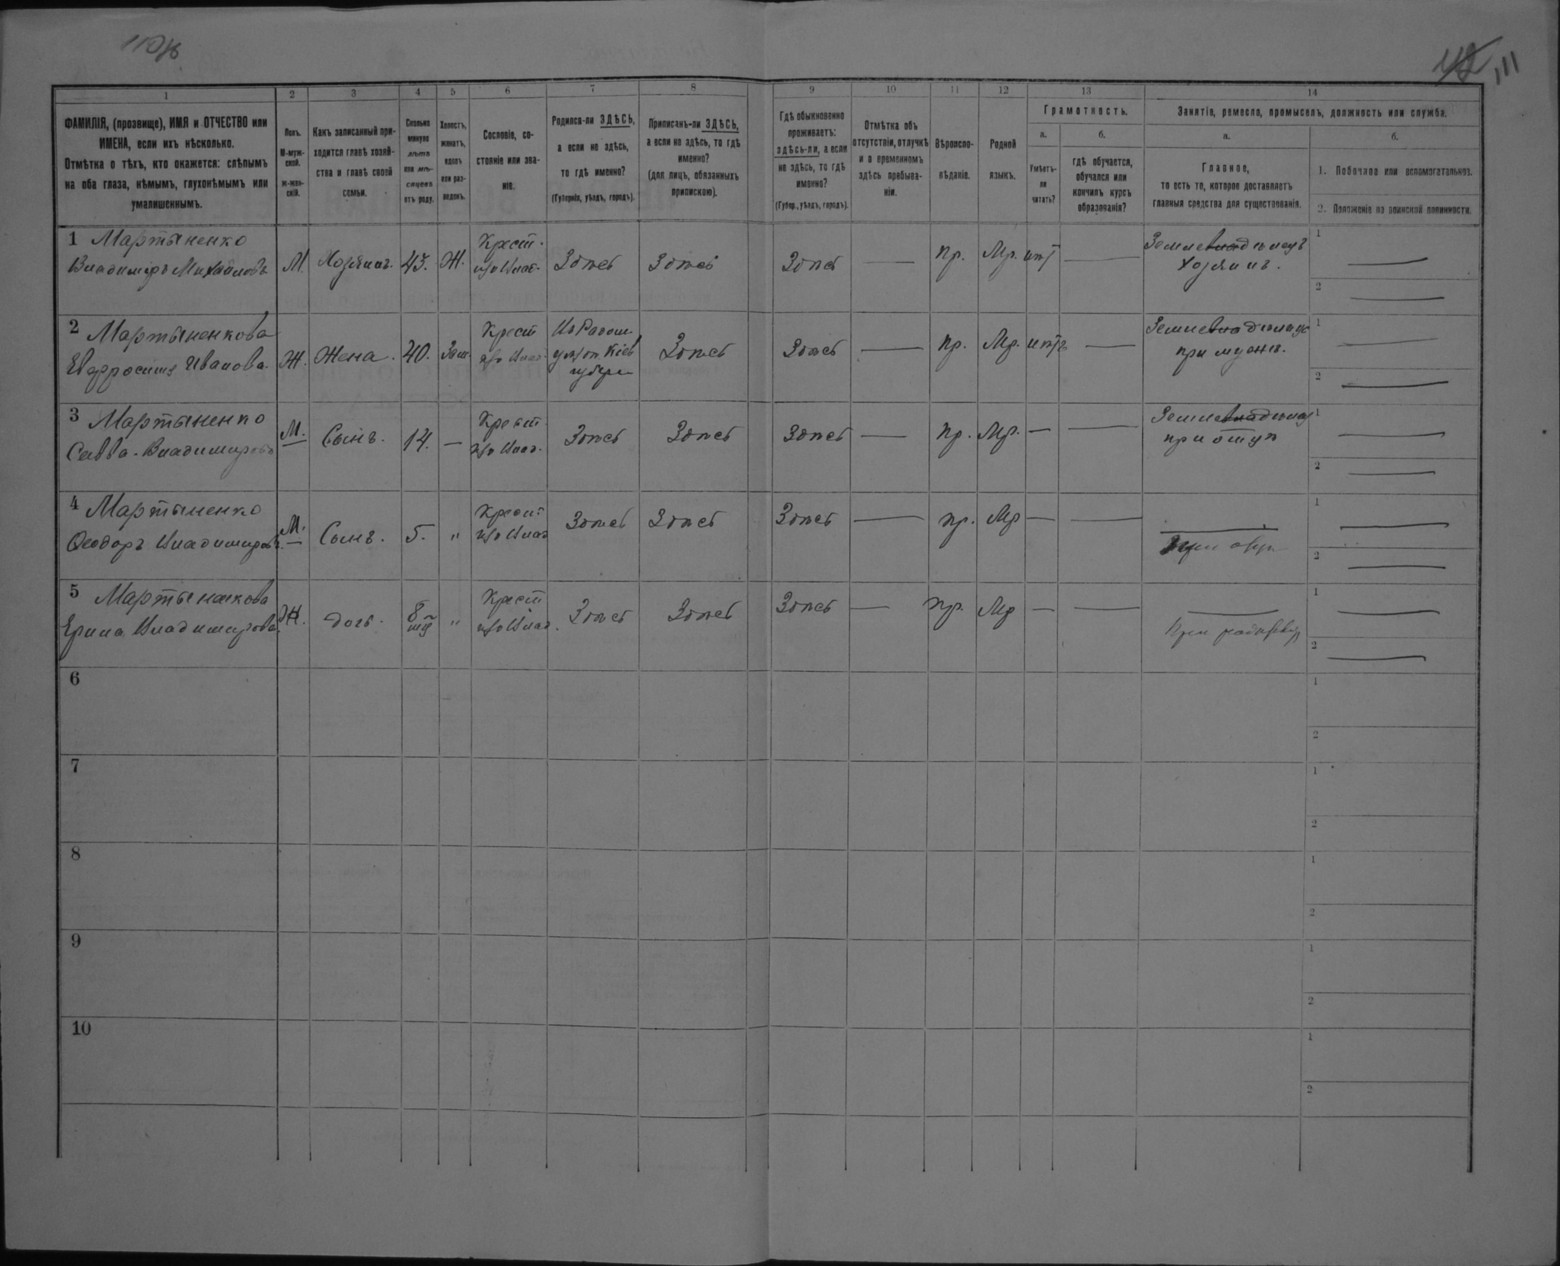 110
111
1
2
3
4
5
6
7
8
9
10
11
12
13
14
ФАМИЛІЯ, (прозвище), ИМЯ и ОТЧЕСТВО или
ИМЕНА, если ихъ нѣсколько.
Отмѣтка о тѣхъ, кто окажется: слѣпымъ
на оба глаза, нѣмымъ, глухонѣмымъ или
умалишеннымъ.
Полъ.
М-муж-
ской.
Ж-жен-
скій.
Какъ записанный при-
ходится главѣ хозяй-
ства и главѣ своей
семьи.
Сколько
минуло
лѣтъ
или мѣ-
сяцевъ
отъ роду.
Холостъ,
женатъ,
вдовъ
или раз-
веденъ.
Сословіе, со-
стояніе или зва-
ніе.
Родился-ли ЗДѢСЬ,
а если не здѣсь,
то гдѣ именно?
(Губернія, уѣздъ, городъ).
Приписанъ-ли ЗДѢСЬ,
а если не здѣсь, то гдѣ
именно?
(для лицъ, обязанныхъ
припискою).
Гдѣ обыкновенно
проживаетъ:
здѣсь-ли, а если
не здѣсь, то гдѣ
именно?
(Губер., уѣздъ, городъ).
Отмѣтка объ
отсутствіи, отлучкѣ
и о временномъ
здѣсь пребыва-
ніи.
Вѣроиспо-
вѣданіе.
Родной
языкъ.
Грамотность.
а.
Умѣетъ-
ли
читать?
б.
гдѣ обучается,
обучался или
кончилъ курсъ
образованія?
Занятіе, ремесло, промыселъ, должность или служба.
а.
Главное,
то есть то, которое доставляетъ
главныя средства для существованія.
б.
1. Побочное или вспомогательное.
2. Положеніе по воинской повинности.
1 Мартыненко
Владиміръ Михайловъ
М
Хозяинъ.
43.
Ж.
Крест.
Здѣсь
Здѣсь
Здѣсь
—
Пр.
Мр.
—
Землевладѣлецъ
Хозяинъ.
1 —
2 —
2 Мартыненкова
Евфросинія Иванова
Ж.
Жена.
40.
Зам
Крест
Кіев
губерн
Здѣсь
Здѣсь
—
Пр.
Мр.
—
Землевладѣлецъ
при мужѣ.
1 —
2 —
3 Мартыненко
Савва Владиміровъ
М.
Сынъ.
14.
—
Крест
Здѣсь
Здѣсь
Здѣсь
—
Пр.
Мр.
—
—
при отцѣ
1 —
2 —
4 Мартыненко
Ѳеодоръ Владиміровъ
М.
Сынъ.
5.
"
Крест
Здѣсь
Здѣсь
Здѣсь
—
Пр.
Мр
—
—
—
при отцѣ
1 —
2 —
5 Мартыненкова
Ерина Владимірова
Ж.
дочь.
8
"
Крест
Здѣсь
Здѣсь
Здѣсь
—
Пр.
Мр
—
—
—
При
1 —
2 —
6
1
2
7
1
2
8
1
2
9
1
2
10
1
2